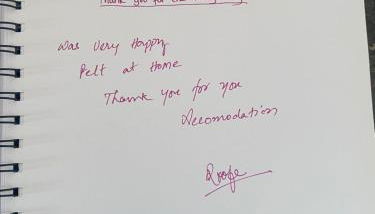 Thank you for
was very Happy
Felt at Home
Thank you for you
Accomodation